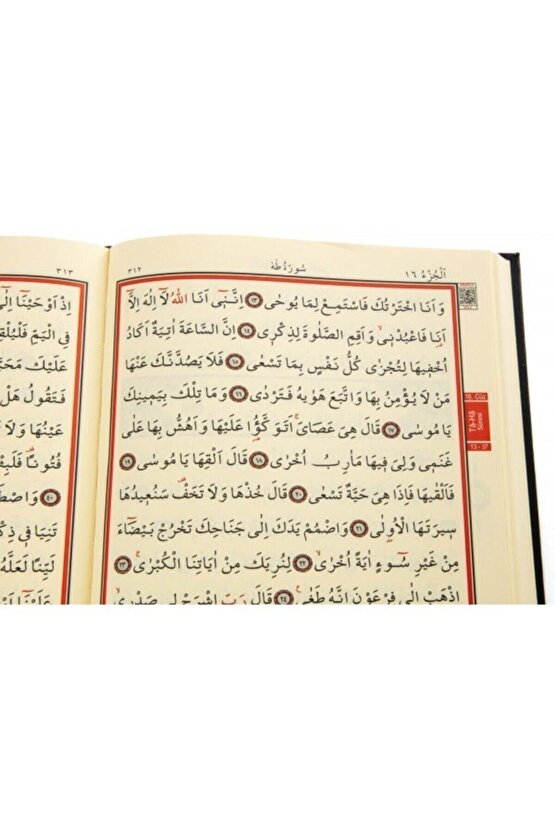 اَلْجُزْءُ ١٦
سُورَةُ طٰهٰ
٣١٢
وَاَنَا اخْتَرْتُكَ فَاسْتَمِعْ لِمَا يُوحٰى ﴿١٣﴾ اِنَّن۪ٓي اَنَا اللّٰهُ لَٓا اِلٰهَ اِلَّٓا
اَنَا فَاعْبُدْن۪يۙ وَاَقِمِ الصَّلٰوةَ لِذِكْر۪ي ﴿١٤﴾ اِنَّ السَّاعَةَ اٰتِيَةٌ اَكَادُ
اُخْف۪يهَا لِتُجْزٰى كُلُّ نَفْسٍ بِمَا تَسْعٰى ﴿١٥﴾ فَلَا يَصُدَّنَّكَ عَنْهَا
مَنْ لَا يُؤْمِنُ بِهَا وَاتَّبَعَ هَوٰيهُ فَتَرْدٰى ﴿١٦﴾ وَمَا تِلْكَ بِيَم۪ينِكَ
يَا مُوسٰى ﴿١٧﴾ قَالَ هِيَ عَصَايَۚ اَتَوَكَّؤُ۬ا عَلَيْهَا وَاَهُشُّ بِهَا عَلٰى
غَنَم۪ي وَلِيَ ف۪يهَا مَاٰرِبُ اُخْرٰى ﴿١٨﴾ قَالَ اَلْقِهَا يَا مُوسٰى ﴿١٩﴾
فَاَلْقٰيهَا فَاِذَا هِيَ حَيَّةٌ تَسْعٰى ﴿٢٠﴾ قَالَ خُذْهَا وَلَا تَخَفْ۠ سَنُع۪يدُهَا
س۪يرَتَهَا الْاُو۫لٰى ﴿٢١﴾ وَاضْمُمْ يَدَكَ اِلٰى جَنَاحِكَ تَخْرُجْ بَيْضَٓاءَ
مِنْ غَيْرِ سُٓوءٍ اٰيَةً اُخْرٰىۙ ﴿٢٢﴾ لِنُرِيَكَ مِنْ اٰيَاتِنَا الْكُبْرٰىۚ ﴿٢٣﴾
اِذْهَبْ اِلٰى فِرْعَوْنَ اِنَّهُ طَغٰى۟ ﴿٢٤﴾ قَالَ رَبِّ اشْرَحْ ل۪ي صَدْر۪يۙ
16. Cüz
Tâ-Hâ
Sûresi
13 - 37
٣١٣
اِذْ اَوْحَيْنَٓا اِلٰٓى
فِي الْيَمِّ فَلْيُلْقِ
عَلَيْكَ مَحَبَّ
فَتَقُولُ هَلْ
عَيْنُهَا وَلَا
فُتُونًا۠ فَلَبِثْ
﴿٤٠﴾ وَاصْطَ
تَنِيَا ف۪ي ذِكْ
لَيِّنًا لَعَلَّهُ
عَلَيْنَٓا